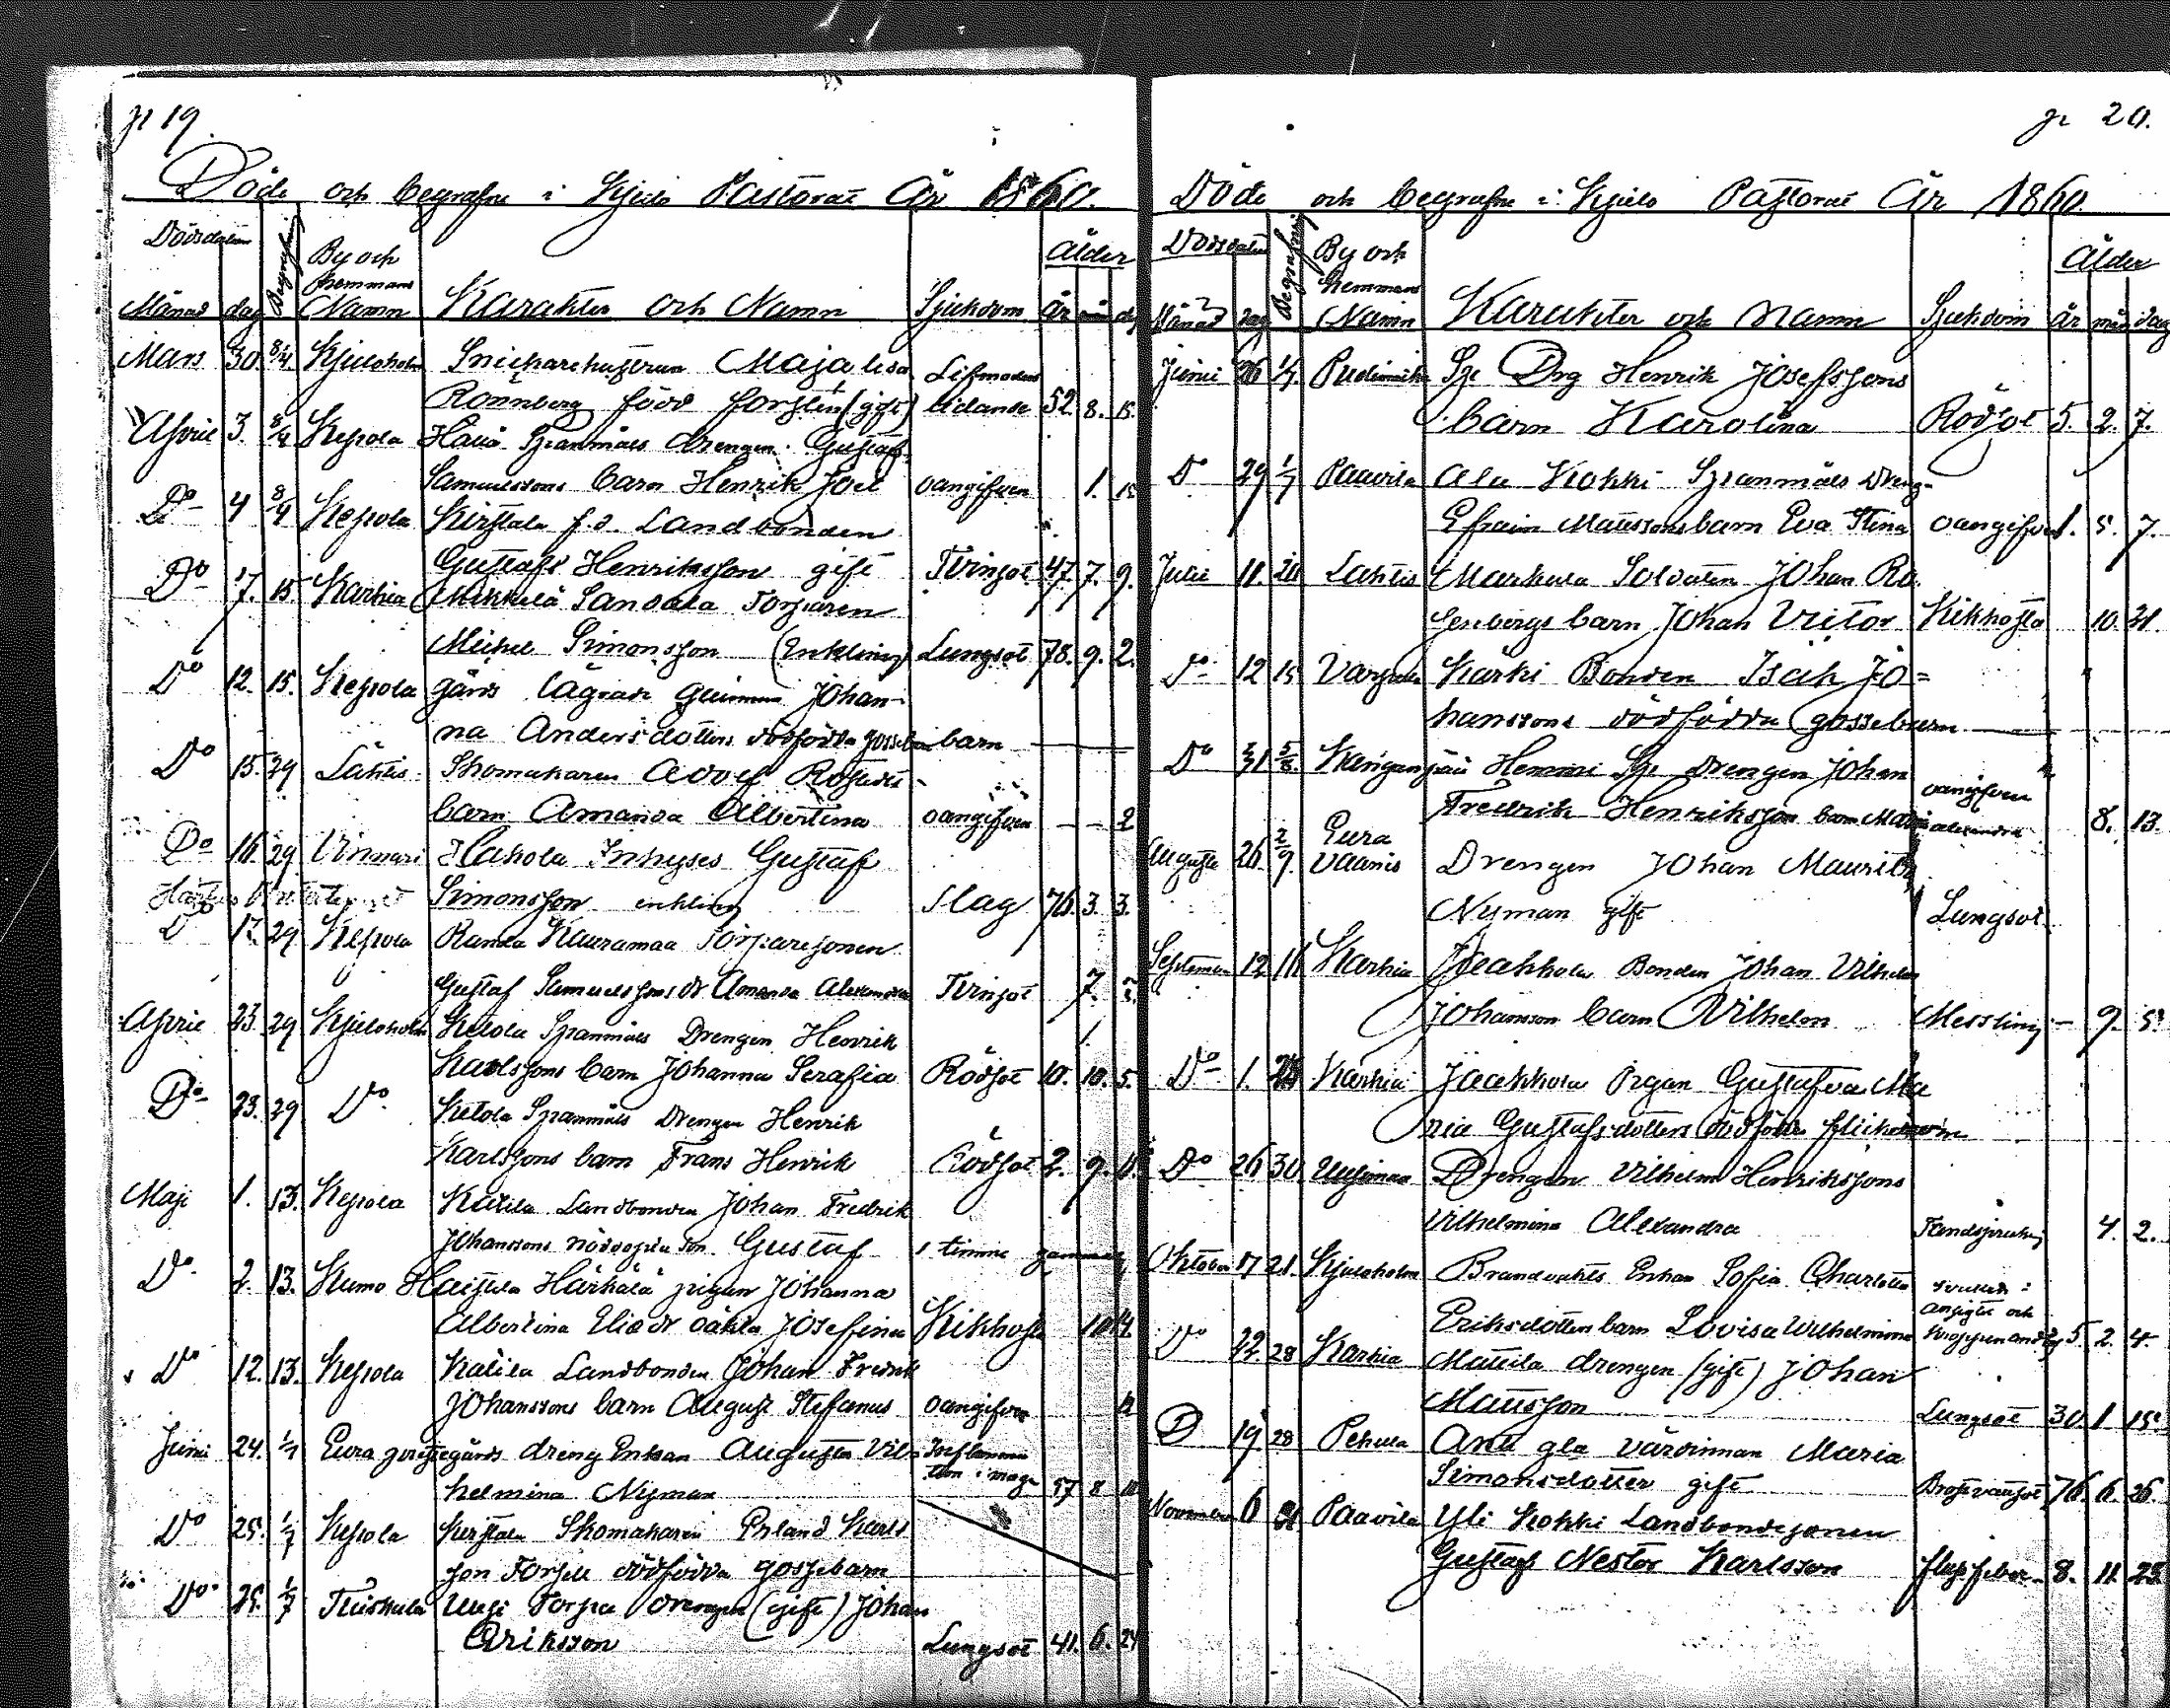 p 19.
Döde och begrafne i Kjulo Pastorat År 1860.
Dödsdatum Begrafning By och hemmans Namn Karakter och Namn Sjukdom Ålder
Månad dag år må dg
Mars 30. 8/4. Kjuloholm Snickarehustrun Maja Lisa Lifmoders
Rönnberg född Forslén (gift) lidande 52. 8. 15.
April 3. 8/4 Kepola Spanmåls drengen Gustaf
Samuelssons barn Henrik Joel oangifven 1. 15
Do 4 8/4 Kepola Kirstala f.d. Landbonden
Gustaf Henriksson gift Tvinsot 47. 7. 9.
Do 7. 15. Karhia Mikkelä Sandala Torparen
Michel Simonsson (Enkling) Lungsot 78. 9. 2.
Do 12. 15. Kepola gårds Johan-
na Andersdotters dödfödda gossebarn
Do 15. 29 Lähtis Skomakaren Adolf
barn Amanda Albertina oangifven — — 2
Do 16. 29 Vinnari Hakola Inhyses Gustaf
Simonsson enkling Slag 76. 3. 3.
Do 17. 29 Kepola Randa Kauramaa Torparesonen
Gustaf Samuelssons dr Amanda Alexandra Tvinsot 7.
April 23. 29 Kjuloholm Ketola Spanmåls Drengen Henrik
Karlssons barn Johanna Serafia Rödsot 10. 10. 5.
Do 23. 29 Do Ketola Spanmåls Drengen Henrik
Karlssons barn Frans Henrik Rödsot 2. 9.
Maji 1. 13. Kepola Katila Landbonden Johan Fredrik
Johanssons nöddöpta son Gustaf 1 timme gammal
Do 2. 13. Kumo Härkälä pigan Johanna
Albertina Elia dr oäkta Josefina Kikhosta 10 14
Do 12. 13. Kepola Katila Landbonden Johan Fredrik
Johanssons barn August Stefanus oangifven
Juni 24. 1/7 Eura prestegårds dreng Enkan Augusta Vil-
helmina Nyman Inflamma tion i mage 57 8
Do 25. 1/7 Kepola Kirstala Skomakaren Erland Karls
son Forsell dödfödda gossebarn
Do 25. 1/7 Tuiskula Uusi Torpa drengen (gift) Johan
Eriksson Lungsot 41. 6. 24
p 20.
Döde och begrafne i Kjulo Pastorat År 1860.
Dödsdatum Begrafning By och hemmans Namn Karakter och Namn Sjukdom Ålder
Månad dag år mån dag
Junii 26 1/7. Spr Drg Henrik Josefssons
barn Karolina Rödsot 5. 2. 7.
Do 29 1/7 Paavila Ala Kokki Spanmåls Dreng-
Efraim Mattssons barn Eva Stina oangifven 1. 5. 7.
Julii 11. 20 Lähtis Markula Soldaten Johan Ro
senbergs barn Johan Victor Kikhosta 10. 21.
Do 12 15 Karhi Bonden Isak Jo=
hanssons dödfödda gossebarn
Do 31 5/8. Henni Spr Drengen Johan
Fredrik Henriksson barn Maria Alexandra oangifven 8. 13.
Augusti 26 2/9. Eura Vaanis Drengen Johan Maurits
Nyman gift Lungsot
September 12 16 Karhia Jaakkola Bonden Johan Vilhelm
Johansson barn Vilhelm Messling — 9. 5
Do 1. Karhia Jaakkola Pigan Gustafva Ma
ria Gustafsdotters dödfödde flickebarn
Do 26 30. Uusimaa Drengen Vilhelm Henrikssons
Vilhelmina Alexandra Tandsprickning 4. 2.
Oktober 17 21. Kjuloholm Brandvakts Enkan Sofia Charlotta
Eriksdotters barn Lovisa Wilhelmina svullnad i ansigtet och kroppen 5. 2. 4.
Do 22. 28 Karhia Mattila drengen (gift) Johan
Mattsson Lungsot 30. 1. 15
D 19 28 Pehula Antti gla värdinnan Maria
Simonsdotter gift 76. 6. 26.
November 6 Paavila Yli Kokki Landbondesonen
Gustaf Nestor Karlsson 8. 11. 25.